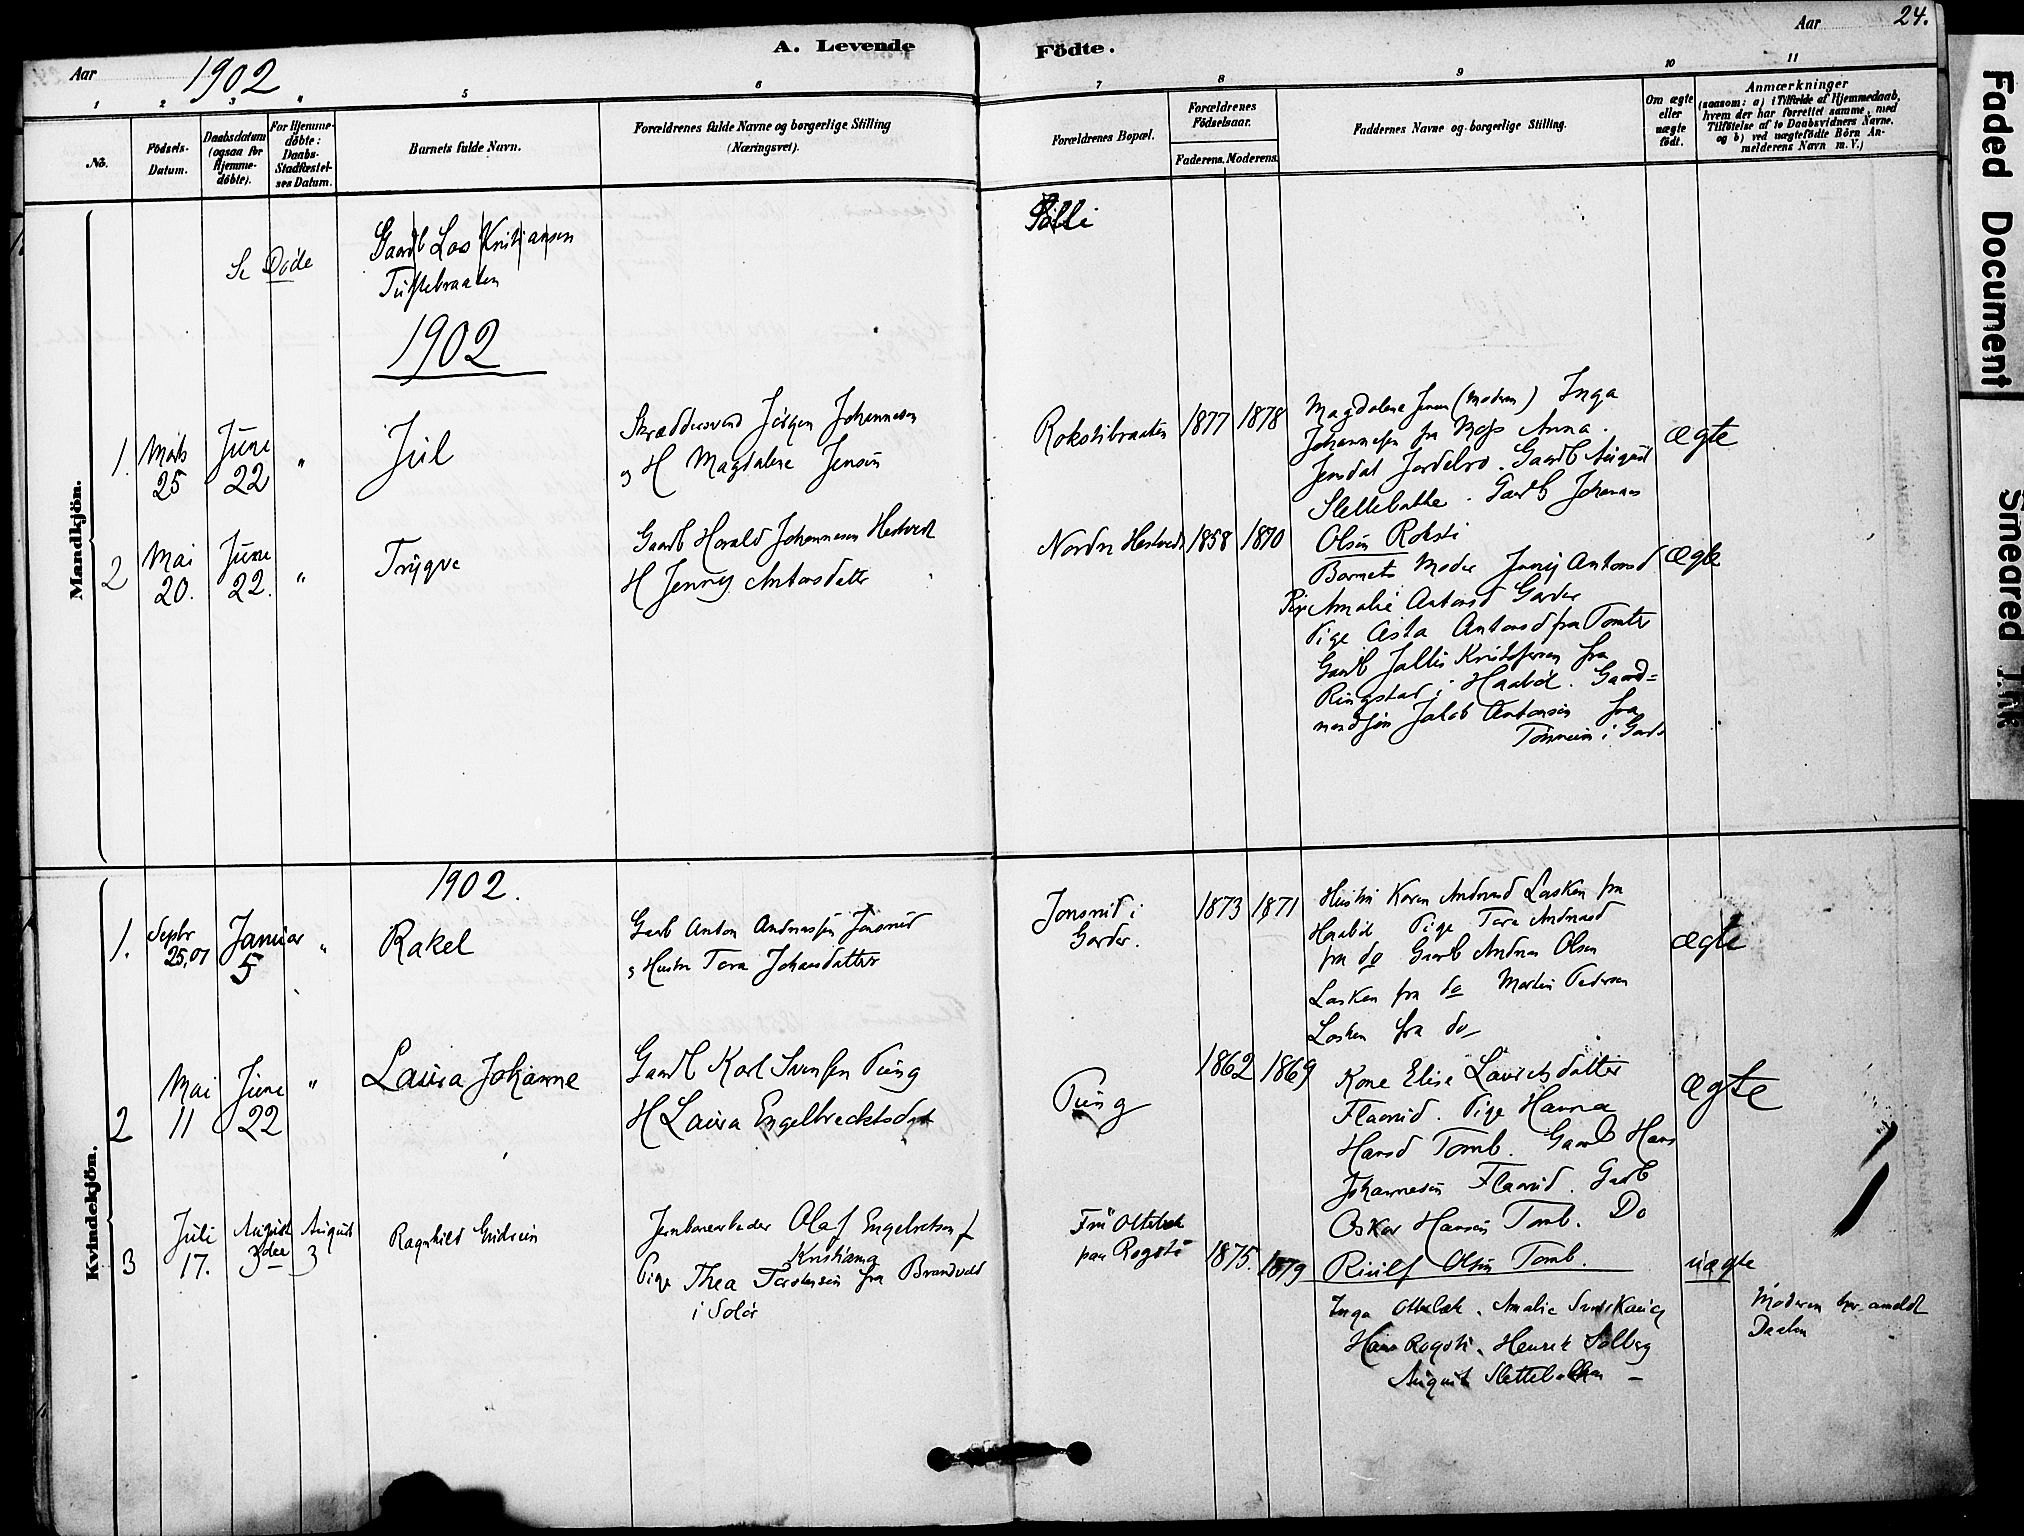 Aar 1902
A. Levende
Födte.
Aar 24.
1 2 3 4 5 6 7 8 9 10 11
No.
Födsels-
Datum.
Daabsdatum
(ogsaa for
Hjemme-
döbte).
For Hjemme-
döbte:
Daabs-
Stadfæstel-
ses Datum.
Barnets fulde Navn.
Forældrenes fulde Navne og borgerlige Stilling
(Næringsvei).
Forældrenes Bopæl.
Forældrenes
Födselsaar.
Faderens. Moderens.
Faddernes Navne og borgerlige Stilling.
Om ægte
eller
uægte
födt.
Anmærkninger
(saasom: a) i Tilfælde af Hjemmedaab,
hvem der har forrettet samme, med
Tilföielse af to Daabsvidners Navne,
og b) ved uægtefödte Börn An-
melderens Navn m. V.)
Mandkjön.
Se Døde
Gaardb Kristiansen
1902
1. Marts 25 June 22 "
Jul
Skræddersvend Jørgen Johannesen
og H Magdalene Jensen
Rokstibraaten 1877 1878
Magdalene Jensen (Moderen) Inga
Johannesen fra Anna
Gaardb August
Slettebakke. Gaardb Johannes
Olsen Roksti
ægte
2 Mai 20. June 22. "
Trygve
Gaardb Harald Johannesen Hestvedt
H Jenny Antonsdatter
Nordre Hestvedt 1858 1870
Barnets Moder Jenny Antonsd
Amalie Antonsd Garder
Pige Asta Antonsd fra Tomter
Gaardb Kristofersen fra
Ringstad i Haabøl. Gaard=
mandssøn Jakob Antonsen fra
i Gard
ægte
Kvindekjön.
1902.
1. Septbr 25,01 Januar 5 "
Rakel
Gaardb Anton Andreassen Jonsrud
og Hustru Tora Johansdatter
Jonsrud i
Garder.
1873 1871
Hustru Karen Andreasd Lasken fra
Haabøl Pige Tora Andreasd
fra do Gaardb Andreas Olsen
Lasken fra do Martin Pedersen
Lasken fra do
ægte
2 Mai 11 June 22 "
Laura Johanne
Gaardb Karl Svensen Pung
H Laura Engelbrecktsdat
Pung
1862 1869
Kone Elise Lauritsdatter
Flaarud. Pige Hanna
Hansd Tomb. Gaardb Hans
Johannesen Flaarud. Gaardb
Oskar Hansen Tomb. Do
Olsen Tomb.
ægte
3 Juli 17. August 3die August 3
Ragnhild Gudrun
Jernbanearbeider Olaf Engebretsen f
Kristiania
Pige Thea Torstensen fra Brandvold
i Solør
Ottebæk
paa Rogsti
1875. 1879
Inga Ottebæk. Amalie
Hans Rogsti. Henrik Solberg
August Slettebakken
uægte
Moderen har anmeldt
Daaben
Faded Document
Smeared Ink